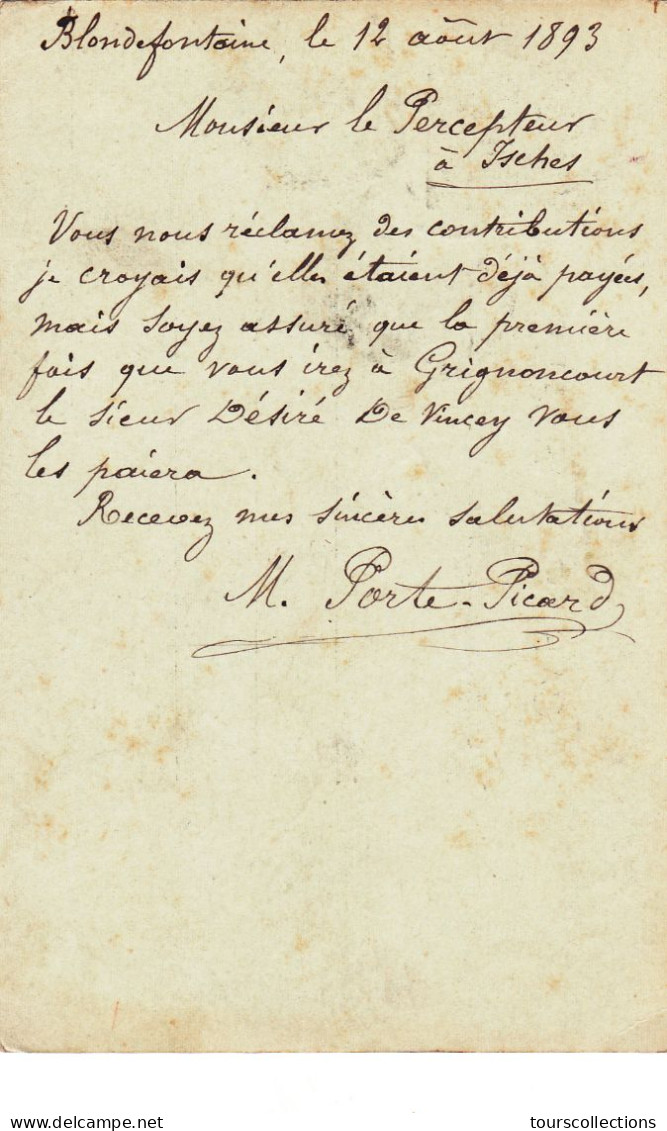 Blondefontaine, le 12 août 1893
Monsieur le Percepteur
à Isches
Vous nous réclamez des contributions
je croyais qu'elles étaient déjà payées,
mais soyez assuré que la première
fois que vous irez à Grignoncourt
le sieur Désiré De Vincey vous
les paiera.
Recevez mes sincères salutations
M. Porte-Picard
delcampe.net
tourscollections